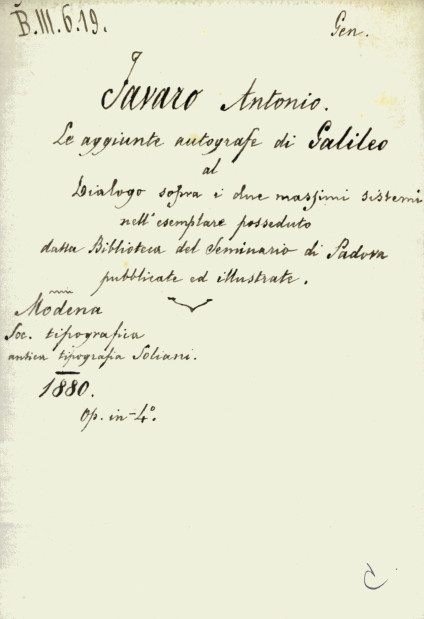 B.III.6.19. Gen.
Favaro Antonio.
Le aggiunte autografe di Galileo
al
Dialogo sopra i due massimi sistemi
nell'esemplare posseduto
dalla Biblioteca del Seminario di Padova
pubblicate ed illustrate.
Modena
Soc. tipografica
antica tipografia Soliani.
1880.
Op. in-4º.
C